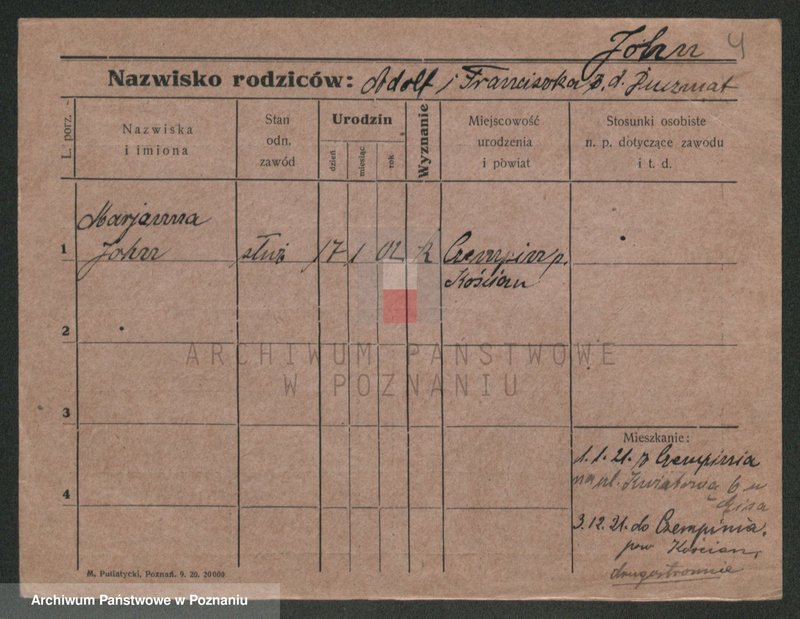 John 4
Nazwisko rodziców: Adolf i Franciszka z d.
L. porz.
Nazwiska
i imiona
Stan
odn.
zawód
Urodzin
dzień
miesiąc
rok
Wyznanie
Miejscowość
urodzenia
i powiat
Stosunki osobiste
n. p. dotyczące zawodu
i t. d.
Marjanna
1 John służ 17 1 02 k Czempiń p.
Kościan
2
ARCHIWUM PAŃSTWOWE
W POZNANIU
3
Mieszkanie:
1.1.21. z Czempinia
na ul. Kwiatowa 6 u
4
3.12.21. do Czempinia.
pow Kościan,
drugostronnie
M. Putiatycki, Poznań. 9. 20. 20000
Archiwum Państwowe w Poznaniu